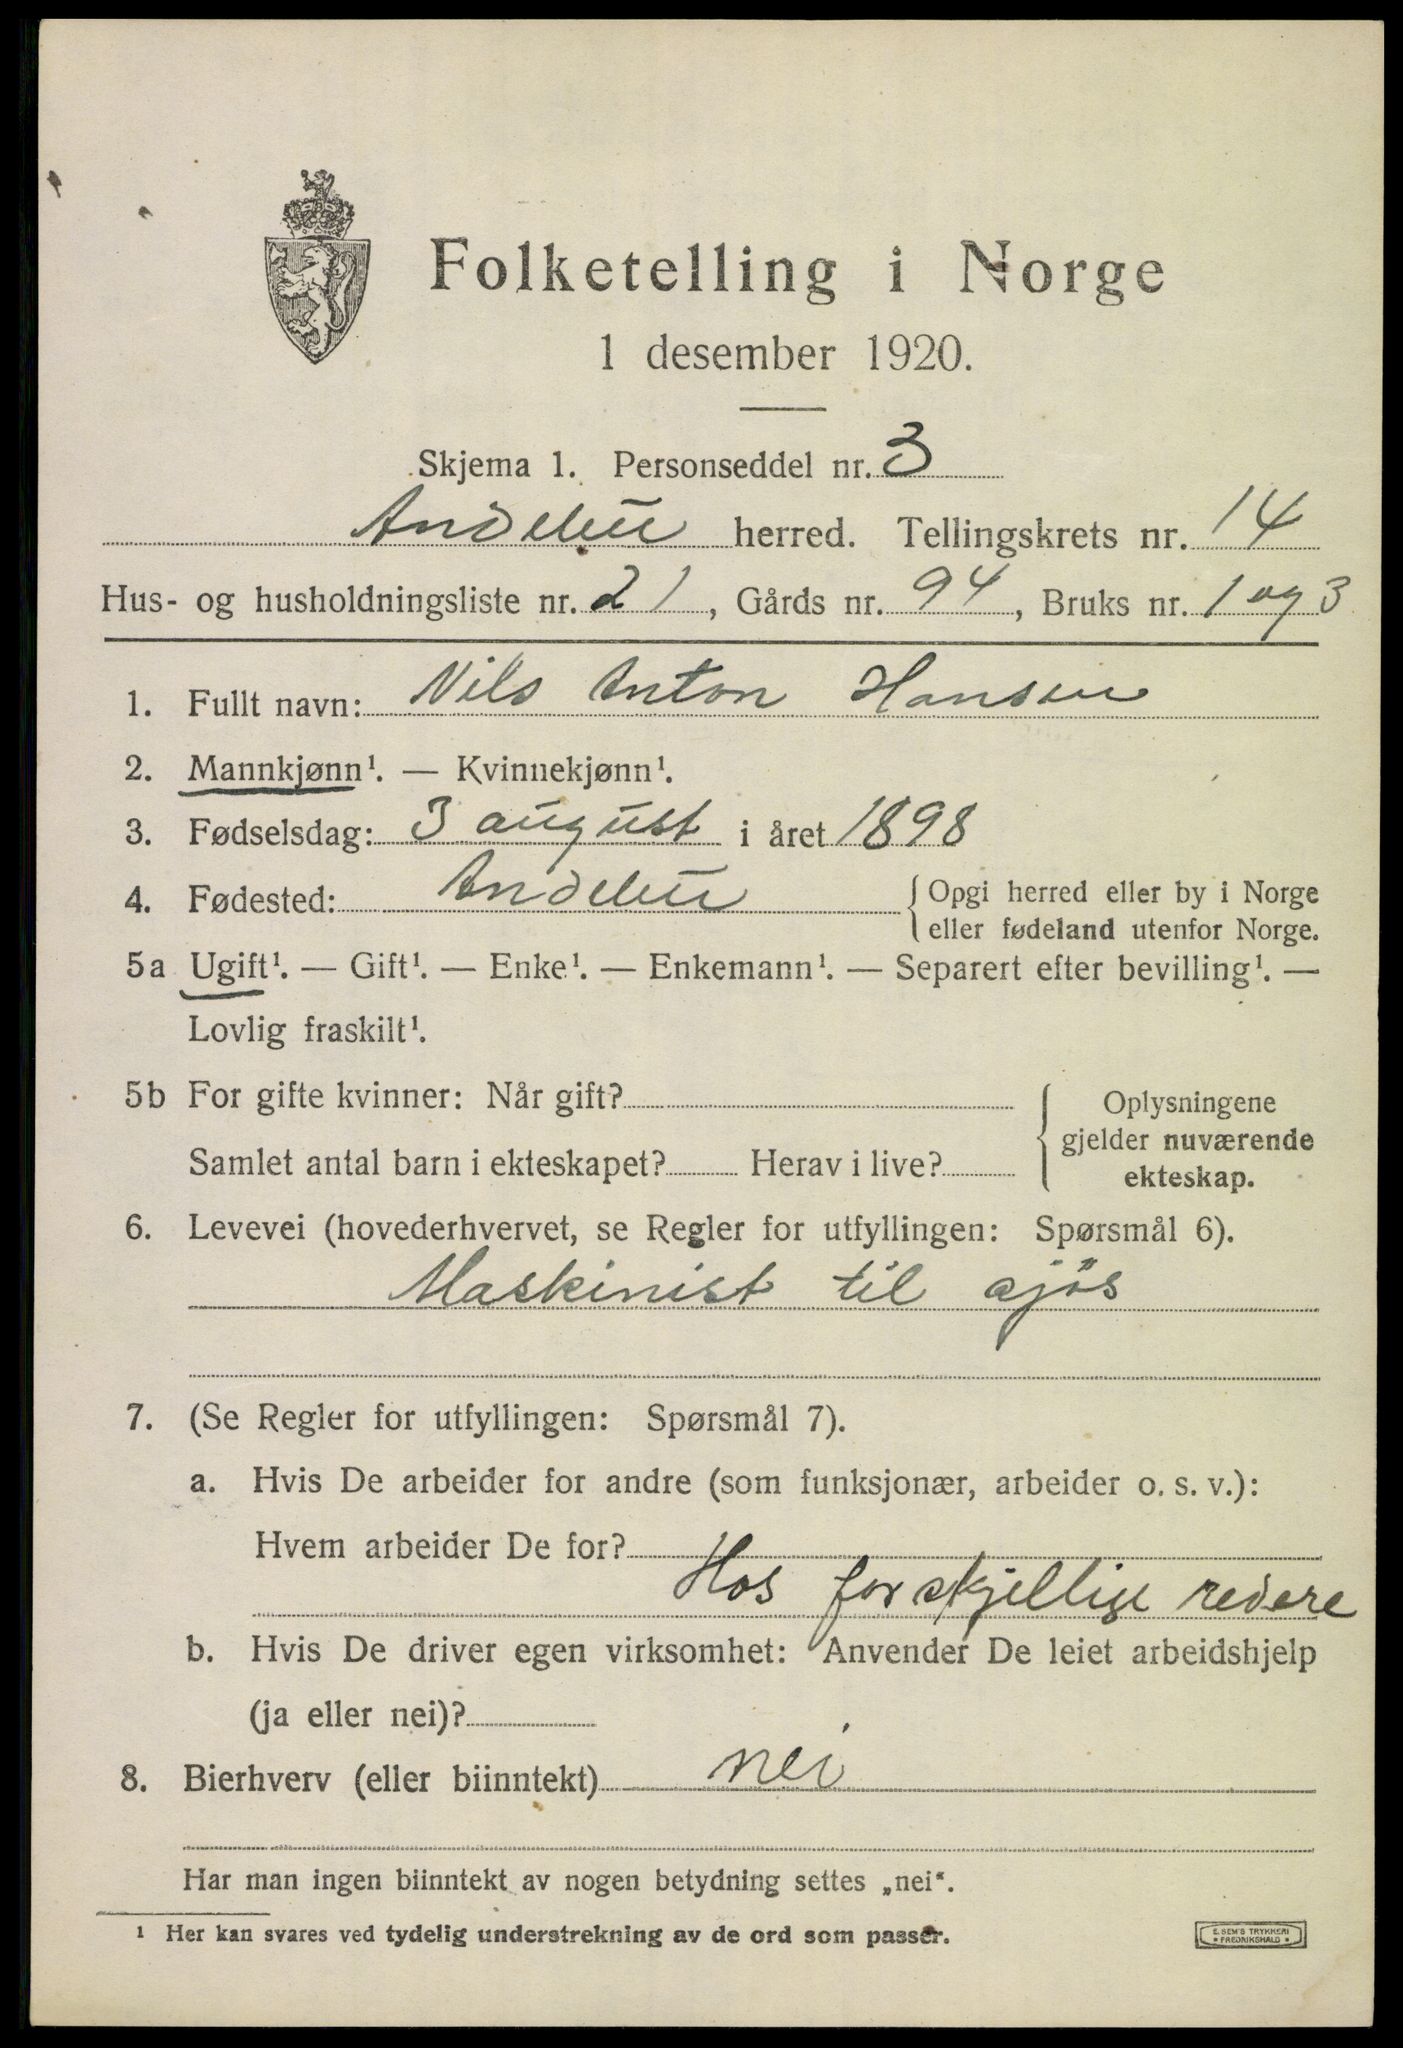 Folketelling i Norge
1 desember 1920.
Skjema 1. Personseddel nr. 3
Andebu herred. Tellingskrets nr. 14
Hus- og husholdningsliste nr. 21, Gårds nr. 94, Bruks nr. 1 og 3
1. Fullt navn: Nils Anton Hansen
2. Mannkjønn¹. — Kvinnekjønn¹.
3. Fødselsdag: 3 august i året 1898
4. Fødested: Andebu { Opgi herred eller by i Norge
eller fødeland utenfor Norge.
5a Ugift¹. — Gift¹. — Enke¹. — Enkemann¹. — Separert efter bevilling¹. —
Lovlig fraskilt¹.
5b For gifte kvinner: Når gift?
Samlet antal barn i ekteskapet? Herav i live?
{ Oplysningene
gjelder nuværende
ekteskap.
6. Levevei (hovederhvervet, se Regler for utfyllingen: Spørsmål 6).
Maskinist til sjös
7. (Se Regler for utfyllingen: Spørsmål 7).
a. Hvis De arbeider for andre (som funksjonær, arbeider o. s. v.):
Hvem arbeider De for?
Hos forskjellige redere
b. Hvis De driver egen virksomhet: Anvender De leiet arbeidshjelp
(ja eller nei)?
8. Bierhverv (eller biinntekt) nei
Har man ingen biinntekt av nogen betydning settes „nei“.
¹ Her kan svares ved tydelig understrekning av de ord som passer.
E. SEM'S TRYKKERI
* FREDRIKSHALD *